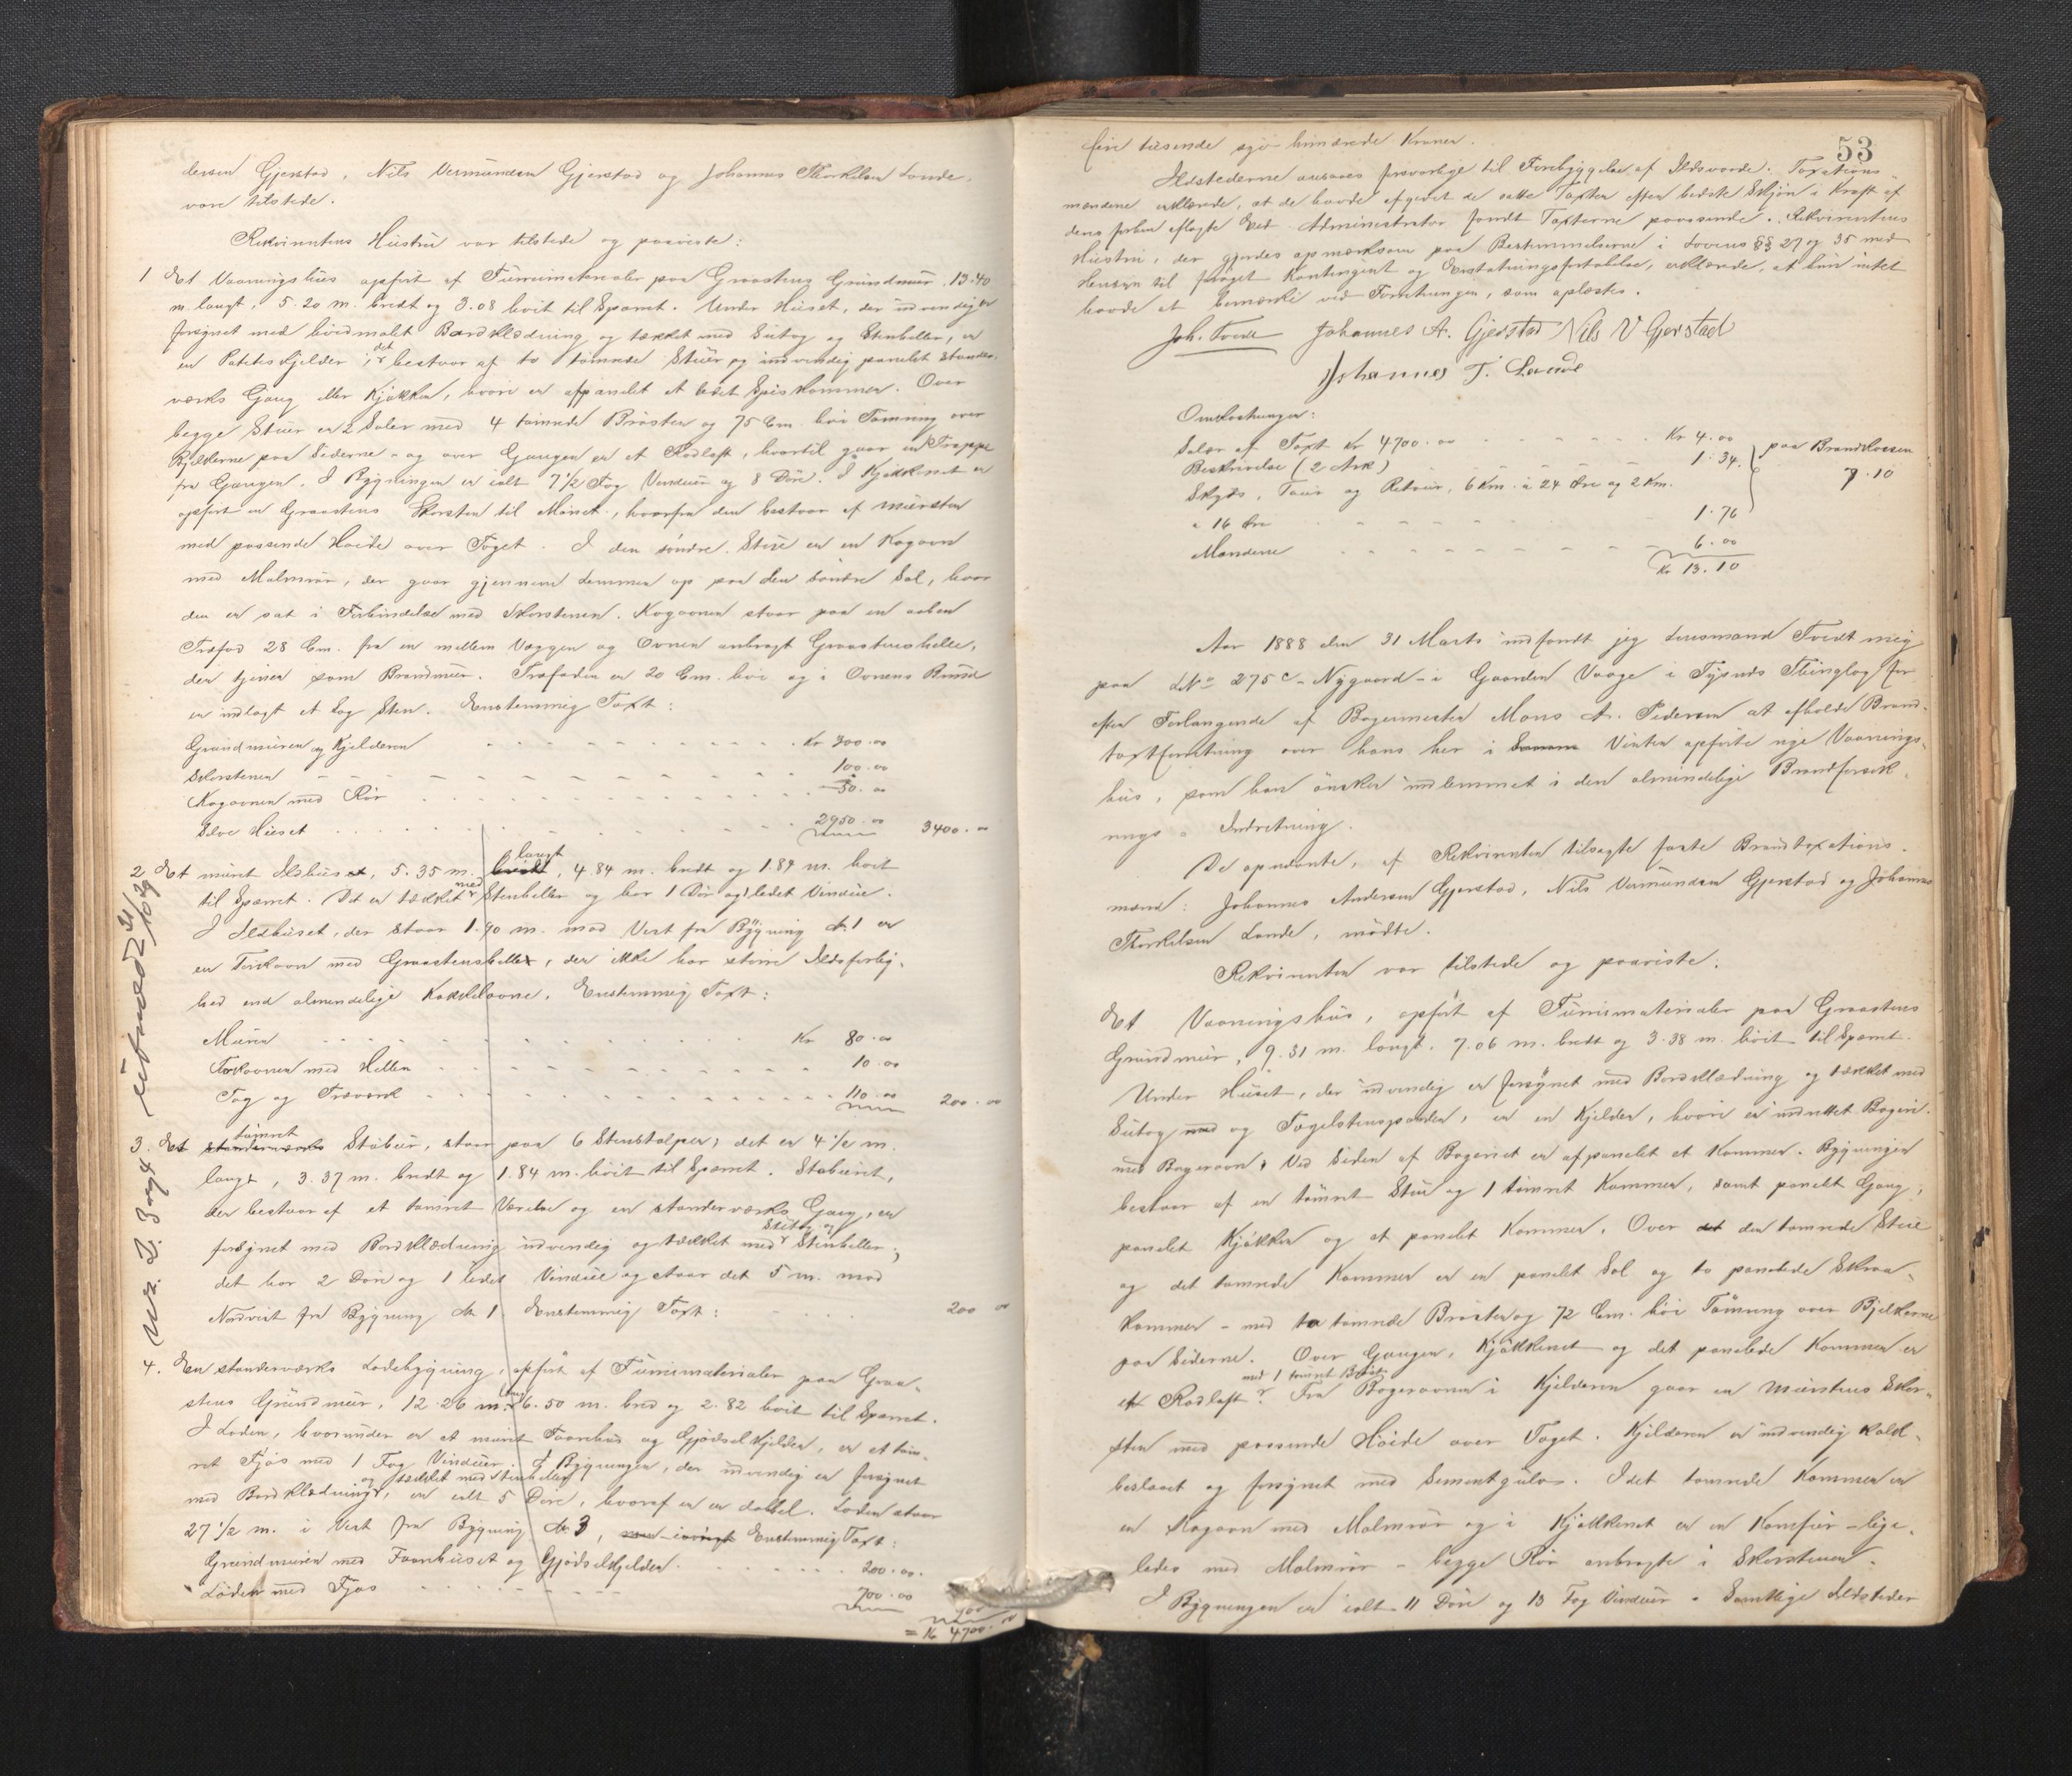 dersen Gjerstad, Nils Vermundsen Gjerstad og Johannes Thorkelsen Lande,
vare tilstede.
Rekvirentens Hustru var tilstede og paaviste:
1 Et Vaaningshus opført af Furumaterialer paa Graastens Grundmur, 13.40
m. langt, 5.20 m. bredt og 3.08 høit til Spærret. Under Huset, der udvendig er
forsynet med hvidmalet Bordklædning og tækket med Sutog og Stenheller, er
en Potetskjelder, det bestaar af to tømrede Stuer og indvendig panelet stander-
værks Gang eller Kjøkken, hvori er afpanelet et lidet Spiskammer. Over
begge Stuer er 2 Saler med 4 tømrede Brøster og 75 Cm. høi Tømring over
Bjelkerne paa Siderne - og over Gangen er et Rodloft, hvortil gaar en Trappe
fra Gangen. I Bygningen er ialt 7 1/2 Fag Vinduer og 8 Døre. I Kjøkkenet er
opført en Graastens Skorsten til Mønet, hvorfra den bestaar af mursten
med passende Høide over Taget. I den søndre Stue er en Kogovn
med Malmrør, der gaar gjennem Lemmen op paa den søndre Sal, hvor
den er sat i Forbindelse med Skorstenen. Kogovnen staar paa en aaben
Træfod 28 Cm. fra en mellem Væggen og Ovnen anbragt Graastenshelle,
der tjener som Brandmur. Træfoden er 20 Cm. høi og i Ovnens Bund
er indlagt et Lag Sten. Enstemmig Taxt:
Grundmuren og Kjelderen Kr 300.00
Skorstenen 100.00
Kogovnen med Rør 50.00
Selve Huset 2950.00 3400.00
2 Et muret Ildhus, 5.35 m. langt, 4.84 m. bredt og 1.84 m. høit
til Spærret. Det er tækket med Stenheller og har 1 Dør og 1 lidet Vindue.
I Ildhuset, der staar 1.90 m. mod Vest fra Bygning № 1 er
en Torkovn med Graastenshelle, der ikke har større Ildsfarlig-
hed end almindelige Kakkelovne. Enstemmig Taxt:
Muren Kr 80.00
Torkovnen med Hellen 10.00
Tag og Træværk 110.00 200.00
3. Et tømret Stabur, staar paa 6 Stenstolper; det er 4 1/2 m.
langt, 3.37 m. bredt og 1.84 m. høit til Spærret. Staburet,
der bestaar af et tømret Værelse og en standerværks Gang, er
forsynet med Bordklædning udvendig og tækket med Sutog og Stenheller;
det har 2 Døre og 1 lidet Vindue og staar det 5 m. mod
Nordvest fra Bygning № 1 Enstemmig Taxt: 200 00
4. En standerværks Ladebygning, opført af Furumaterialer paa Graa-
stens Grundmur, 12.26 m. lang 6.50 m. bred og 2.82 høit til Spærret.
I Laden, hvorunder er et muret Faarehus og Gjødselkjelder, er et tøm-
ret Fjøs med 1 Fag Vinduer. I Bygningen, der udvendig er forsynet
med Bordklædning og tækket med Stenheller, er ialt 5 Døre, hvoraf en er dobbel. Laden staar
27 1/2 m. i Vest fra Bygning № 3, Enstemmig Taxt:
Grundmuren med Faarehuset og Gjødselkjelder 200.00.
Laden med Fjøs 700.00 900
= Kr 4700.00
Nr. 2. 3 og 4 udmeldt 31/10 29
53
fire tusende syv hundrede Kroner.
Ildstederne ansaaes forsvarlige til Forebyggelse af Ildsvaade. Taxations-
mændene erklærede, at de havde afgivet de satte Taxter efter bedste Skjøn i Kraft af
deres forhen aflagte Ed. Administrator fandt Taxterne passende. Rekvirentens
Hustru, der gjordes opmærksom paa Bestemmelserne i Lovens §§ 27 og 35 med
Hensyn til forøget Kontingent og Erstatningsfortabelse, erklærede, at hun intet
havde at bemærke ved Forretningen, som oplæstes.
Joh. Tvedt Johannes A. Gjerstad Nils V Gjerstad
Johannes T. Lande
Omkostninger:
Salær af Taxt Kr 4700.00 Kr 4.00
Beskrivelse (2 Ark) 1.34. paa Brandkassen
7.10
Skyds, Tour og Retour, 6 Km. à 24 Øre og 2 Km.
à 16 Øre 1.76
Mændene 6.00
Kr 13.10
Aar 1888 den 31 Marts indfandt jeg Lensmand Tvedt mig
paa LNo 275 c - Nygaard - i Gaarden Vaage i Tysnes Thinglag for
efter Forlangende af Bagermester Mons A. Pedersen at afholde Brand-
taxtforretning over hans her i Vinter opførte nye Vaanings-
hus, som han ønsker indlemmet i den almindelige Brandforsik-
rings-Indretning.
De opnævnte, af Rekvirenten tilsagte faste Brandtaxations-
mænd: Johannes Andersen Gjerstad, Nils Vermundsen Gjerstad og Johannes
Thorkelsen Lande, mødte.
Rekvirenten var tilstede og paaviste:
Et Vaaningshus, opført af Furumaterialer paa Graastens
Grundmur, 9.31 m. langt, 7.06 m. bredt og 3.38 m. høit til Spærret.
Under Huset, der udvendig er forsynet med Bordklædning og tækket med
Sutog og Taglstenspander, er en Kjelder, hvori er indrettet Bageri
med Bagerovn, Ved Siden af Bageriet er afpanelet et Kammer. Bygningen
bestaar af en tømret Stue og 1 tømret Kammer, samt panelet Gang,
panelet Kjøkken og et panelet Kammer. Over den tømrede Stue
og det tømrede Kammer er en panelet Sal og to panelede Skraa-
kammer - med to tømrede Brøster og 72 Cm. høi Tømring over Bjelkerne
paa Siderne. Over Gangen, Kjøkkenet og det panelede Kammer er
et Rodloft med 1 tømret Brøst. Fra Bagerovnen i Kjelderen gaar en Murstens Skor-
sten med passende Høide over Taget. Kjelderen er indvendig kalk-
beslaaet og forsynet med Sementgulv. I det tømrede Kammer er
en Kogovn med Malmrør og i Kjøkkenet er en Komfur - lige-
ledes med Malmrør - begge Rør anbragte i Skorstenen.
I Bygningen er ialt 11 Døre og 13 Fag Vinduer. Samtlige Ildsteder